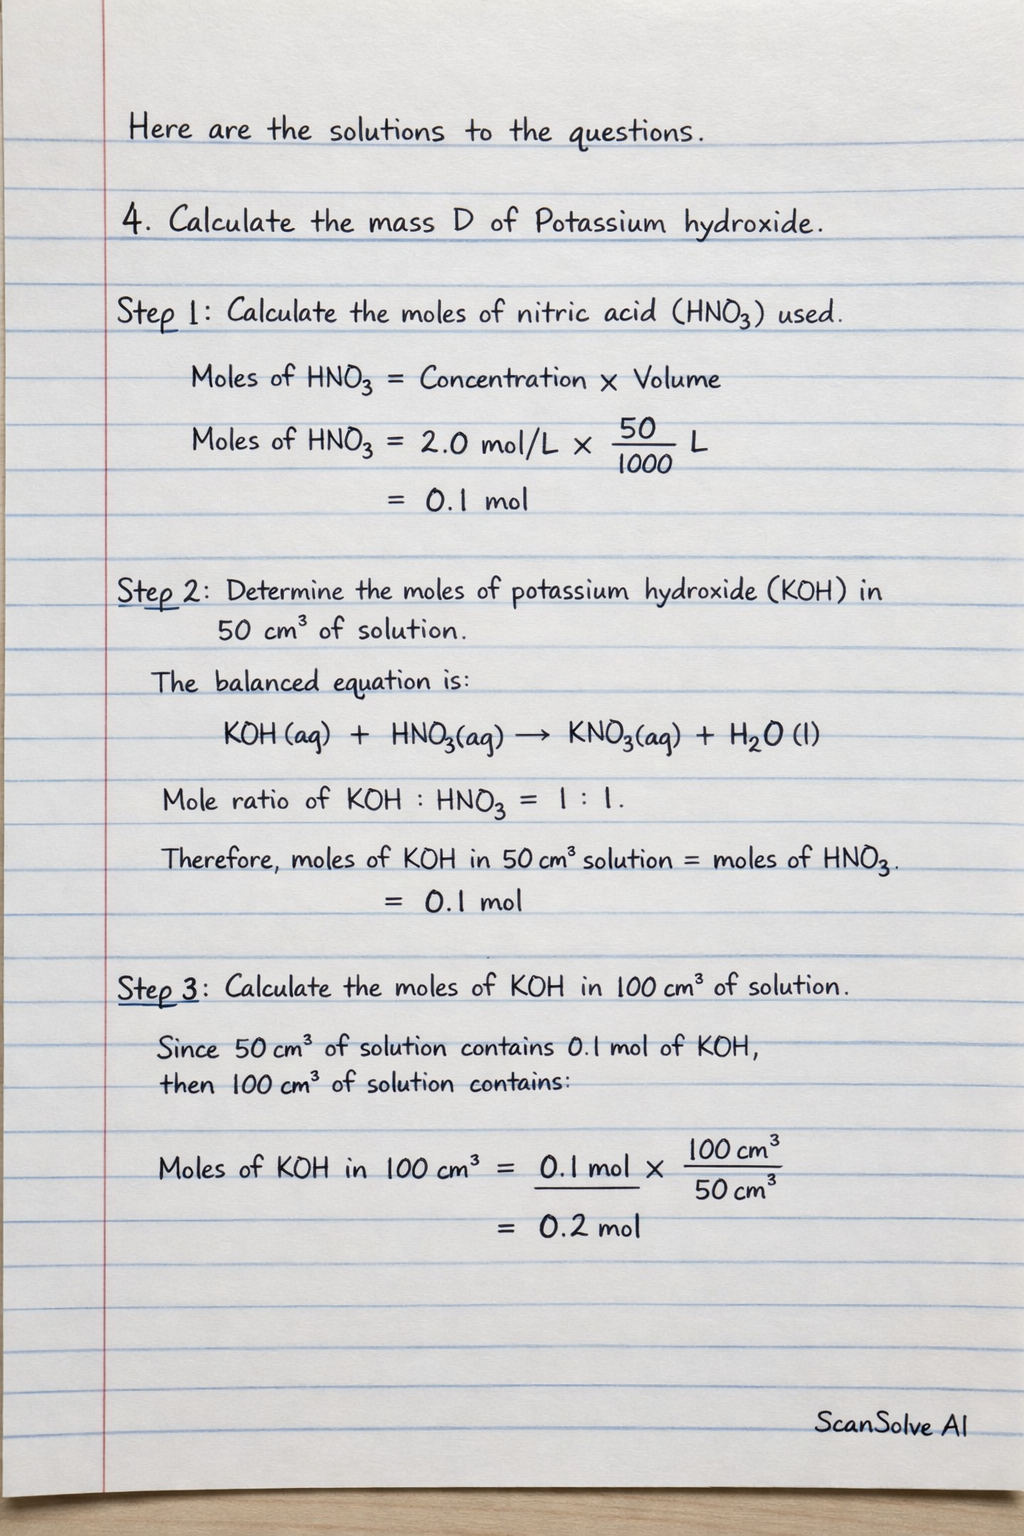 Here are the solutions to the questions.
4. Calculate the mass D of Potassium hydroxide.
Step 1: Calculate the moles of nitric acid (HNO₃) used.
Moles of HNO₃ = Concentration × Volume
Moles of HNO₃ = 2.0 mol/L × 50/1000 L
= 0.1 mol
Step 2: Determine the moles of potassium hydroxide (KOH) in
50 cm³ of solution.
The balanced equation is:
KOH (aq) + HNO₃(aq) → KNO₃(aq) + H₂O (l)
Mole ratio of KOH : HNO₃ = 1 : 1.
Therefore, moles of KOH in 50 cm³ solution = moles of HNO₃.
= 0.1 mol
Step 3: Calculate the moles of KOH in 100 cm³ of solution.
Since 50 cm³ of solution contains 0.1 mol of KOH,
then 100 cm³ of solution contains:
Moles of KOH in 100 cm³ = 0.1 mol × 100 cm³/50 cm³
= 0.2 mol
ScanSolve AI